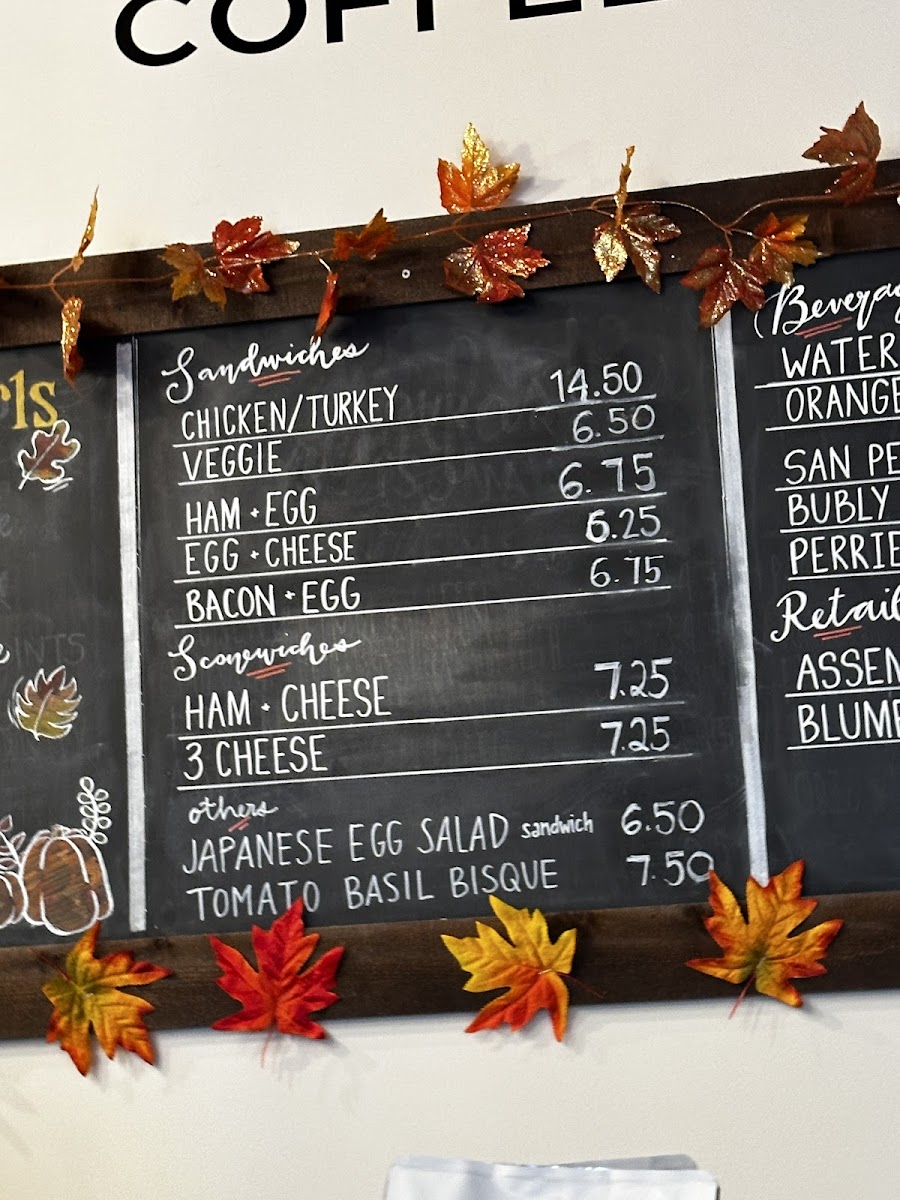 COFFEE
rls
INTS
Sandwiches
CHICKEN/TURKEY 14.50
VEGGIE 6.50
HAM + EGG 6.75
EGG + CHEESE 6.25
BACON + EGG 6.75
Sconewiches
HAM + CHEESE 7.25
3 CHEESE 7.25
others
JAPANESE EGG SALAD sandwich 6.50
TOMATO BASIL BISQUE 7.50
Beverag
WATER
ORANGE
SAN PE
BUBLY
PERRIE
Retail
ASSEN
BLUME